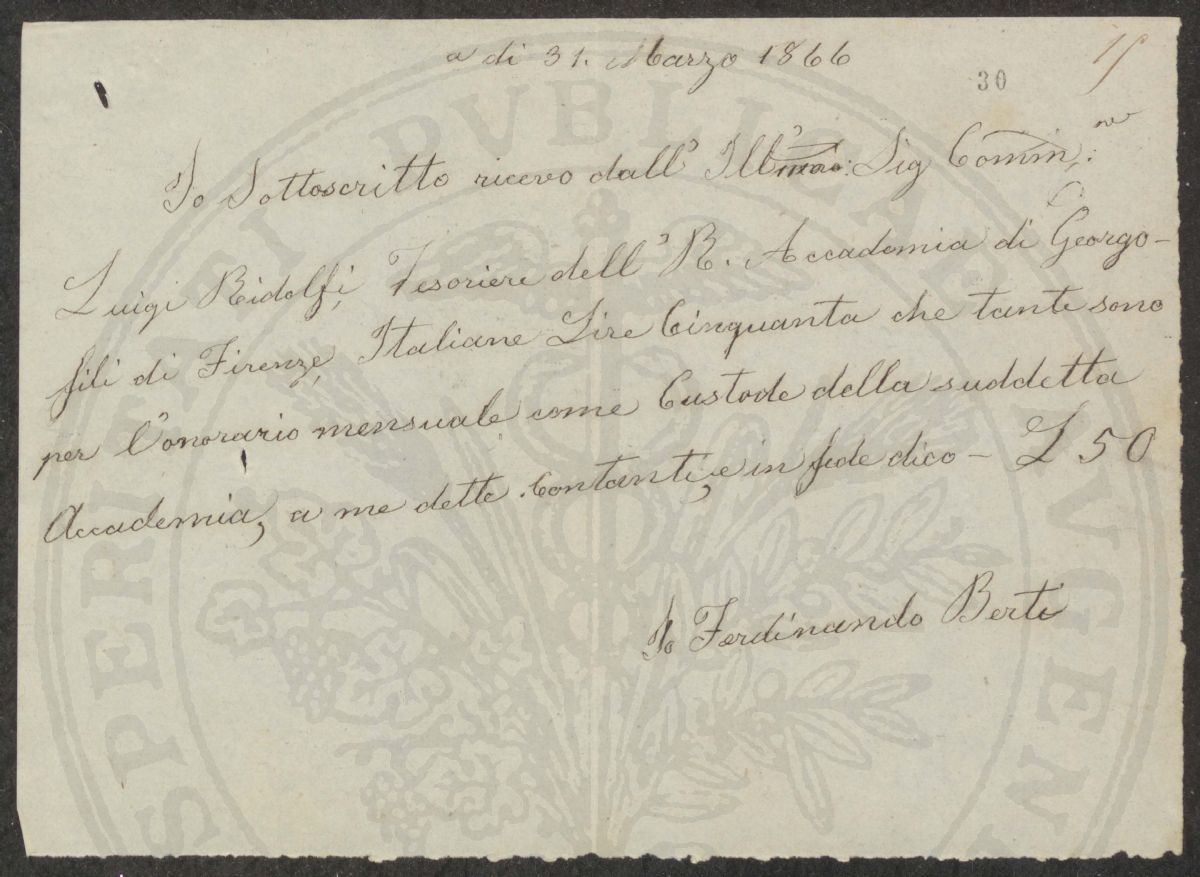 a di 31. Marzo 1866
30
Io Sottoscritto ricevo dall' Ill Sig Comm:
Luigi Ridolfi, Tesoriere dell' R. Accademia di Georgo-
fili di Firenze, Italiane Lire Cinquanta che tante sono
per l'onorario mensuale come Custode della suddetta
Accademia, a me dette Contanti, e in fede dico - L 50
Io Ferdinando Berti
PROSPERITATI PVBLICAE AVGENDAE